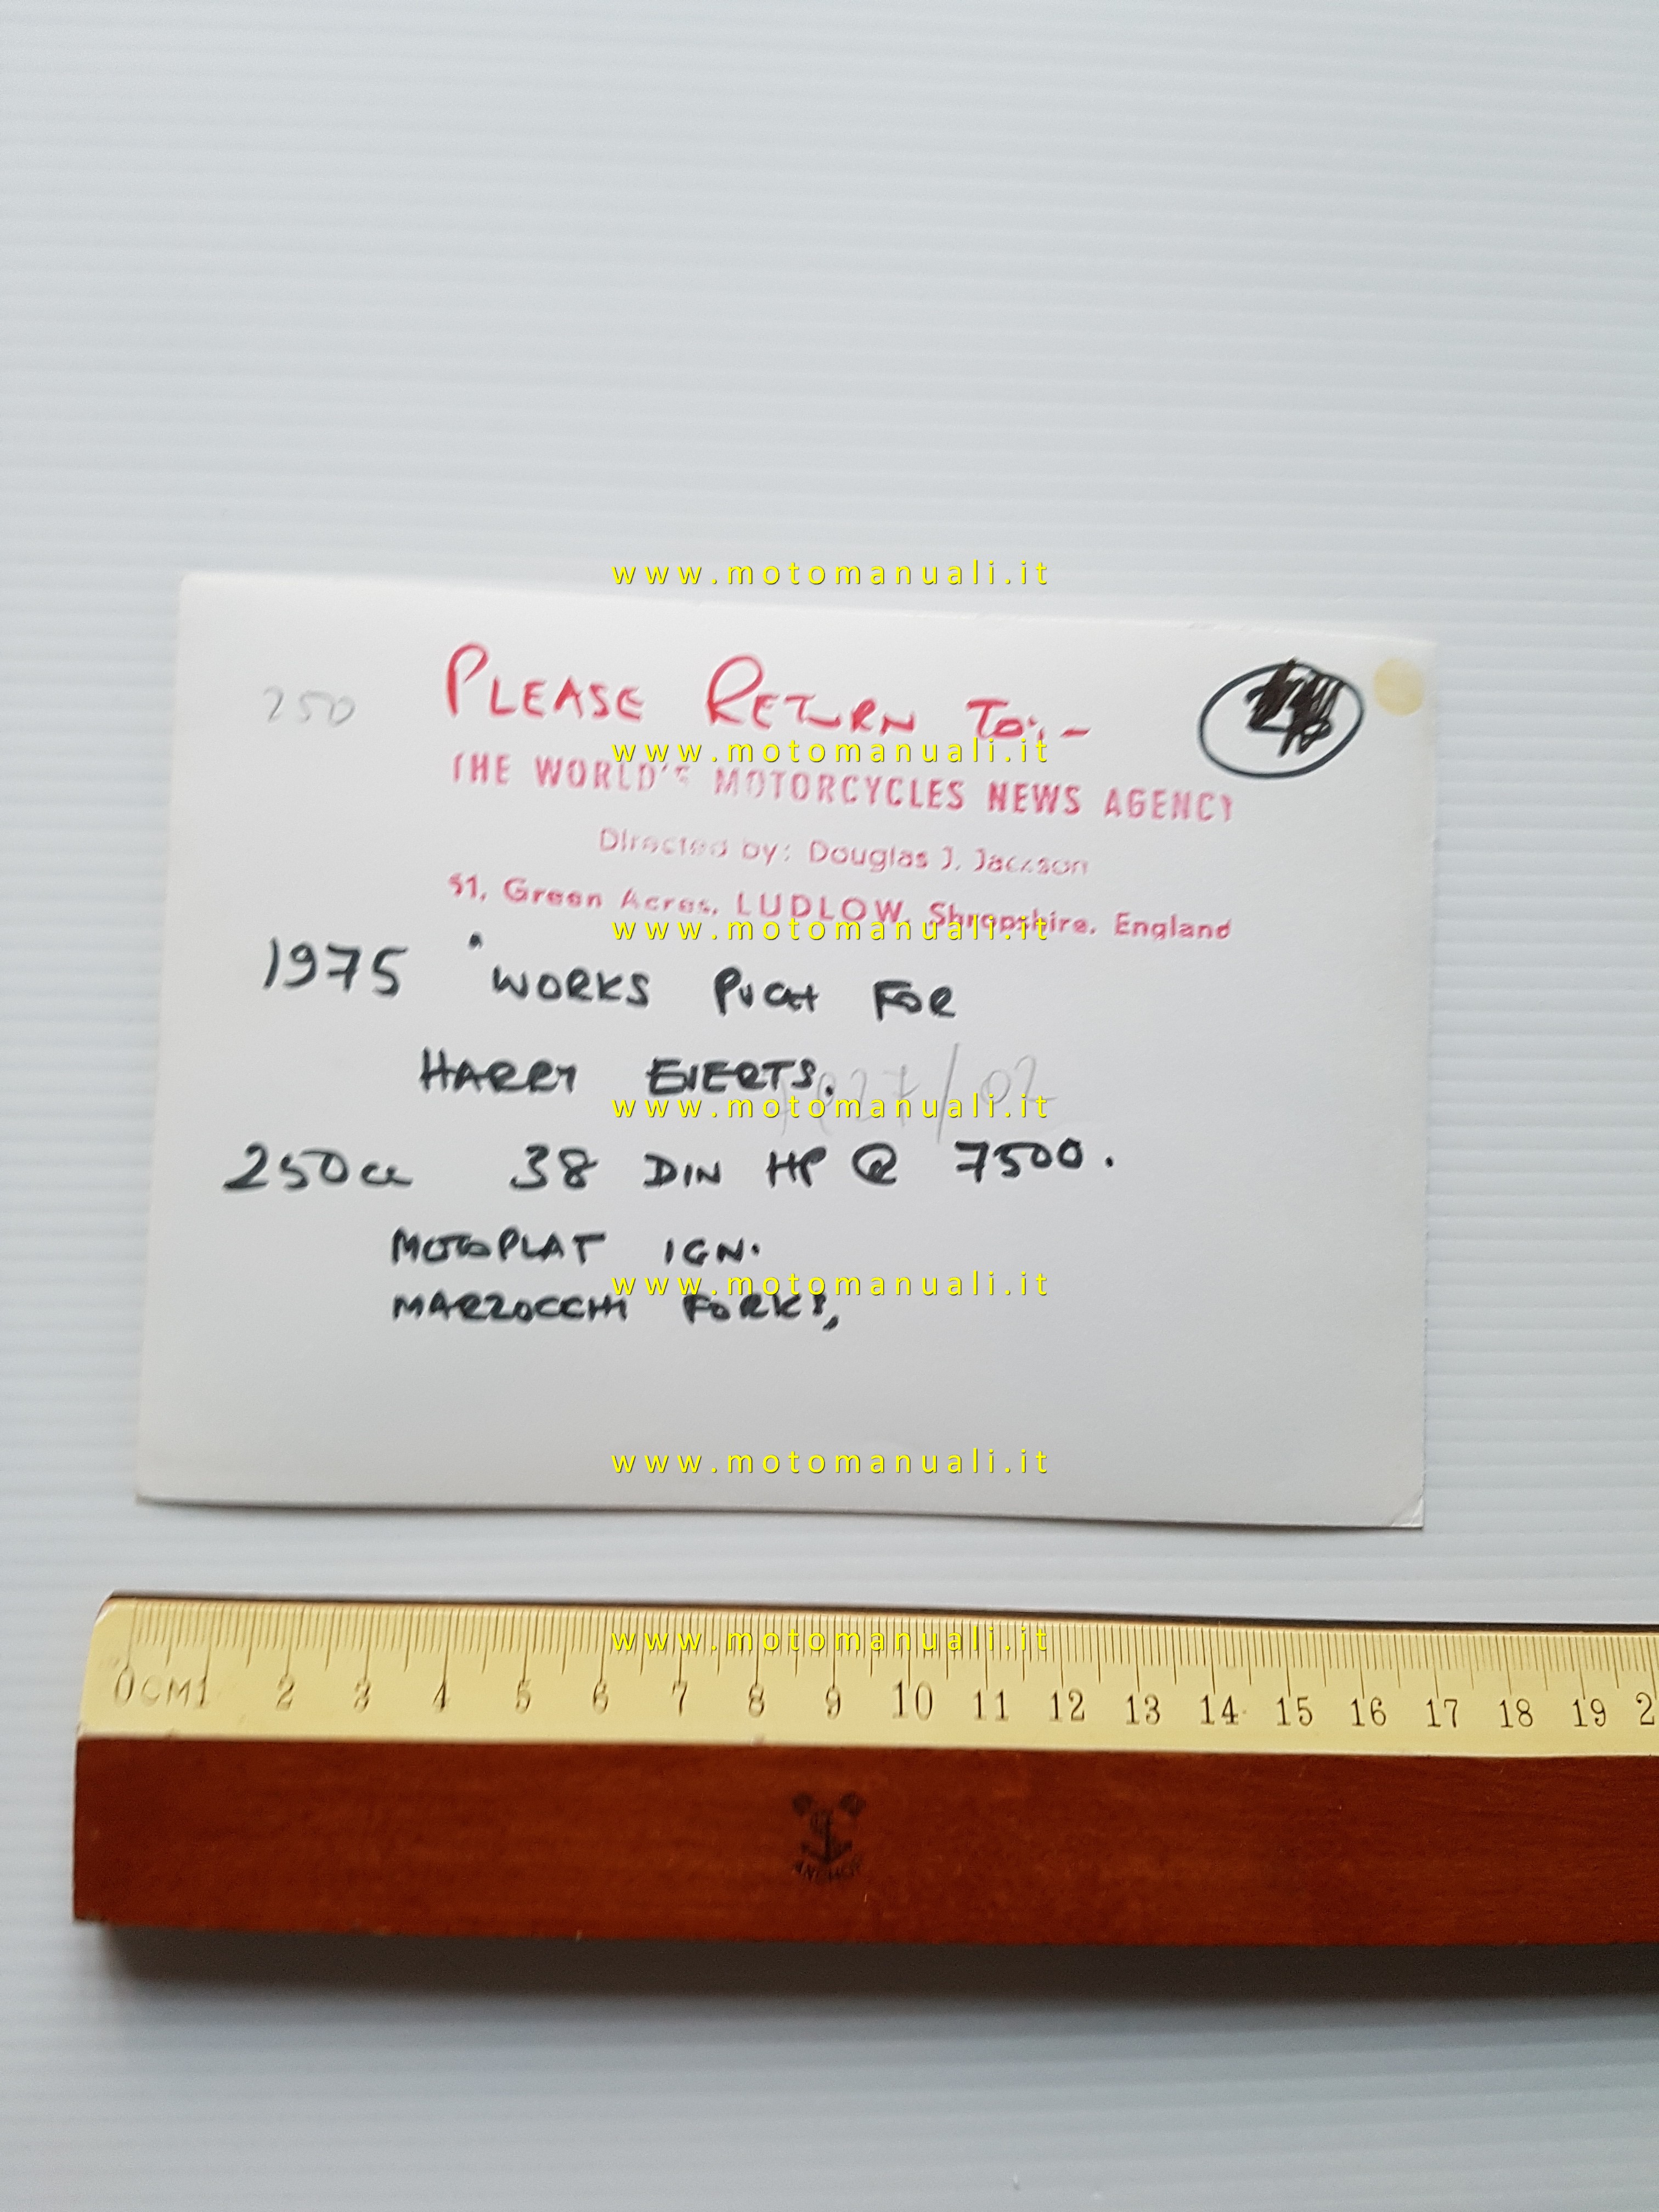 www.motomanuali.it
250
PLEASE RETURN TO:-
www.motomanuali.it
THE WORLD'S MOTORCYCLES NEWS AGENCY
Directed by: Douglas J. Jackson
51, Green Acres, LUDLOW, Shropshire, England
www.motomanuali.it
1975 "WORKS PUCH FOR
HARRY EVERTS.
www.motomanuali.it
250cc 38 DIN HP @ 7500.
MOTOPLAT IGN.
www.motomanuali.it
MARZOCCHI FORKS,
www.motomanuali.it
www.motomanuali.it
0CM1 2 3 4 5 6 7 8 9 10 11 12 13 14 15 16 17 18 19 2